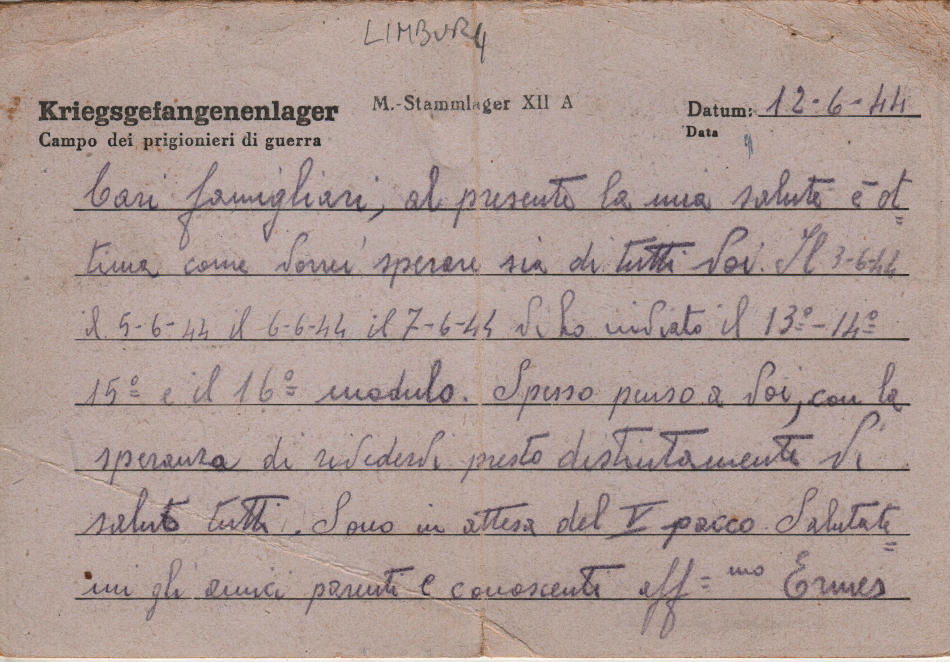 LIMBURG
Kriegsgefangenenlager M.-Stammlager XII A Datum: 12-6-44
Campo dei prigionieri di guerra Data
Cari famigliari, al presente la mia salute è ot=
tima come vorrei sperare sia di tutti Voi. Il 3-6-44
il 5-6-44 il 6-6-44 il 7-6-44 vi ho inviato il 13º-14º
15º e il 16º modulo. Spesso penso a Voi, con la
speranza di rivedervi presto distintamente Vi
saluto tutti. Sono in attesa del V pacco. Salutate=
mi gli amici parenti e conoscenti aff=mo Ermes